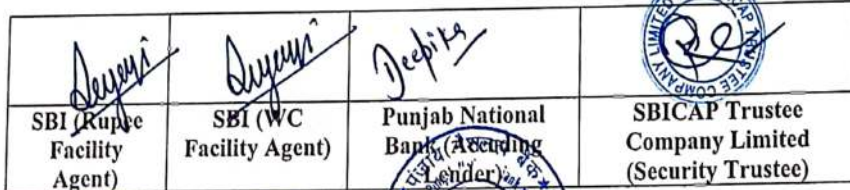 Deepika
LIMITED SBICAP TRUSTEE COMPANY
SBI (Rupee
Facility
Agent)
SBI (WC
Facility Agent)
Punjab National
Bank (Acceding
Lender)
SBICAP Trustee
Company Limited
(Security Trustee)